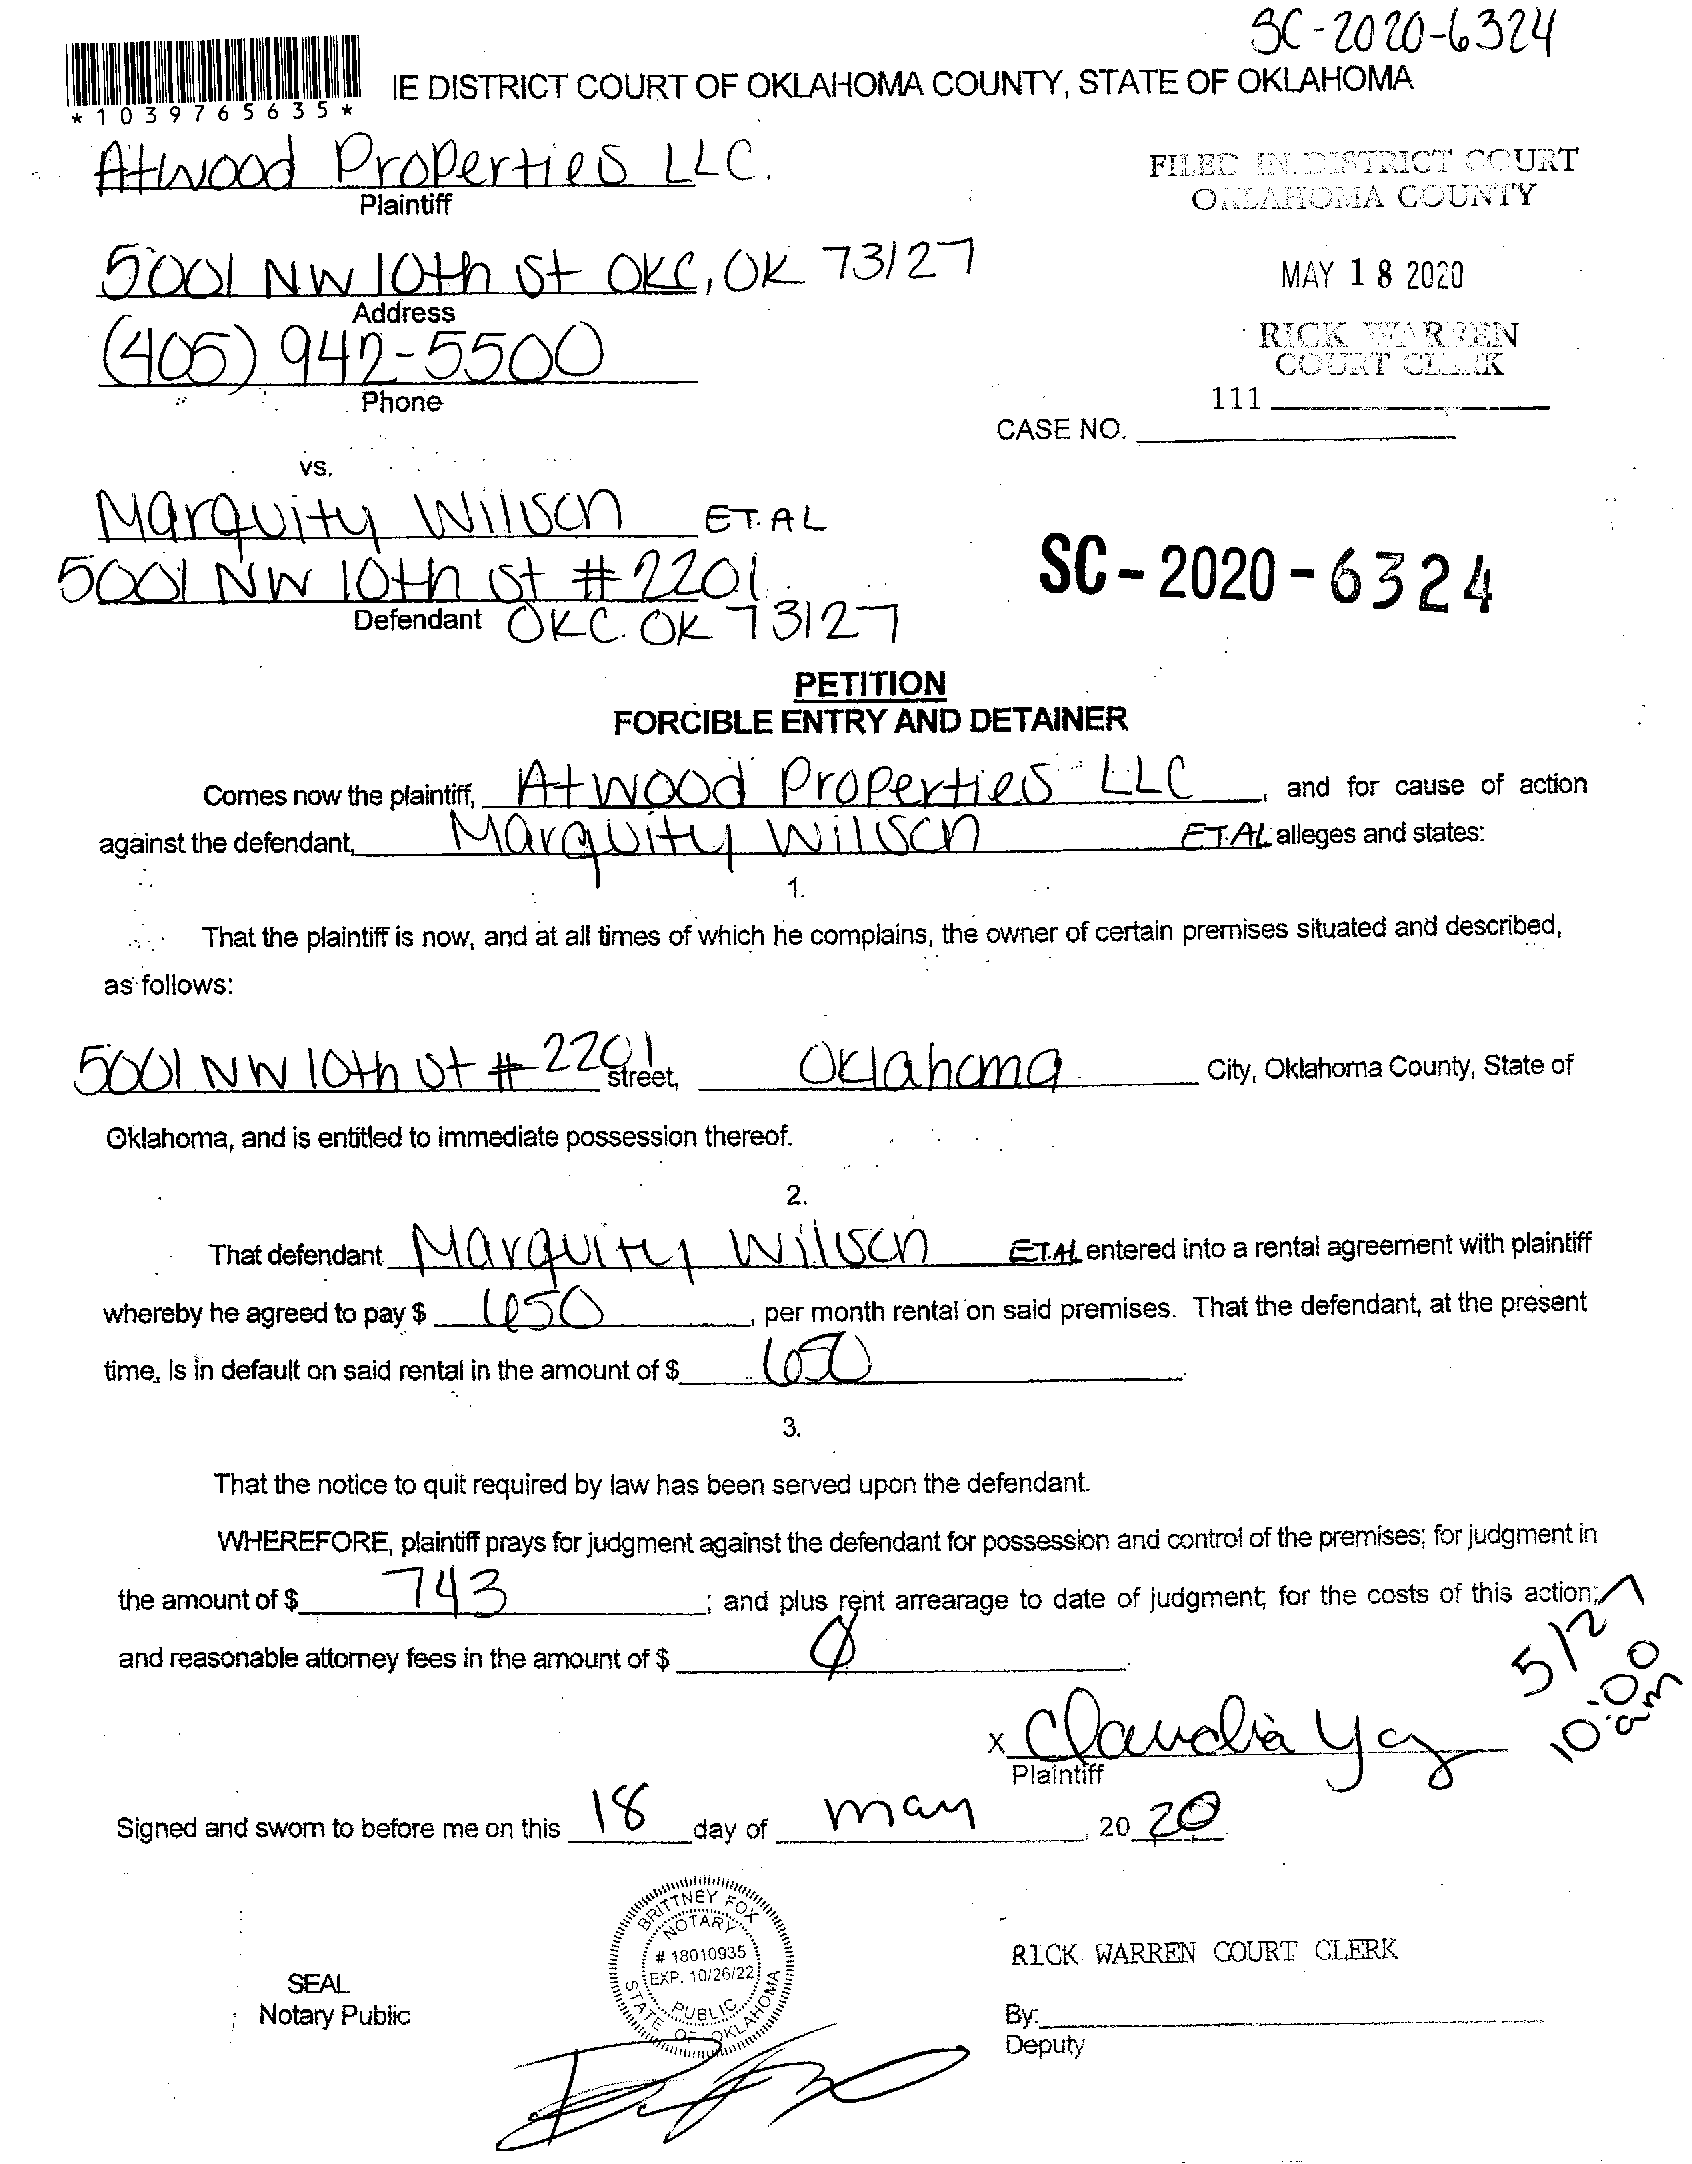 SC-2020-6324
*1039765635*
IE DISTRICT COURT OF OKLAHOMA COUNTY, STATE OF OKLAHOMA
Atwood Properties LLC.
Plaintiff
FILED IN DISTRICT COURT
OKLAHOMA COUNTY
5001 NW 10th St OKC, OK 73127
Address
MAY 18 2020
(405) 942-5500
Phone
RICK WARREN
COURT CLERK
111
CASE NO.
vs.
Marquity Wilson ET. AL
5001 NW 10th St # 2201
Defendant OKC. OK 73127
SC-2020-6324
PETITION
FORCIBLE ENTRY AND DETAINER
Comes now the plaintiff, Atwood Properties LLC, and for cause of action
against the defendant, Marquity Wilson ET.AL alleges and states:
1.
That the plaintiff is now, and at all times of which he complains, the owner of certain premises situated and described,
as follows:
5001 NW 10th St # 2201 street, Oklahoma City, Oklahoma County, State of
Oklahoma, and is entitled to immediate possession thereof.
2.
That defendant Marquity Wilson ET.AL entered into a rental agreement with plaintiff
whereby he agreed to pay $ 650, per month rental on said premises. That the defendant, at the present
time, Is in default on said rental in the amount of $ 650
3.
That the notice to quit required by law has been served upon the defendant.
WHEREFORE, plaintiff prays for judgment against the defendant for possession and control of the premises; for judgment in
the amount of $ 743; and plus rent arrearage to date of judgment; for the costs of this action;
and reasonable attorney fees in the amount of $ 0
5/27
10:00
am
x Claudia
Plaintiff
Signed and sworn to before me on this 18 day of may, 2020
BRITTNEY FOX
NOTARY
# 18010935
EXP. 10/26/22
PUBLIC
STATE OF OKLAHOMA
SEAL
Notary Public
RICK WARREN COURT CLERK
By:
Deputy